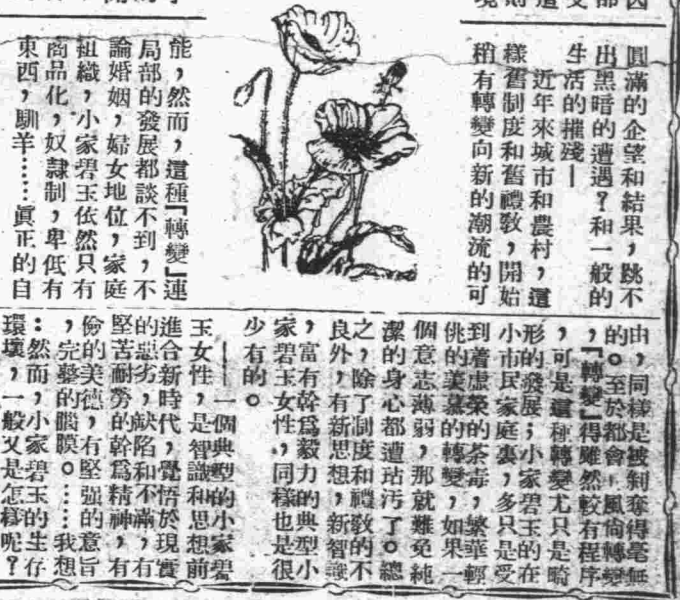 圓滿的企望和結果，跳不
出黑暗的遭遇？和一般的
生活的摧殘—
近年來城市和農村，這
樣舊制度和舊禮敎，開始
稍有轉變向新的潮流的可
能，然而，這種『轉變』連
局部的發展都談不到，不
論婚姻，婦女地位，家庭
組織，小家碧玉依然只有
商品化，奴隷制，卑低有
東西，馴羊……眞正的自
由，同樣是被剝奪得毫無
的。至於都會，風尙轉變
，『轉變』得雖然較有程序
，可是這種轉變尤只是畸
形的發展；小家碧玉的在
小市民家庭裏，多只是受
到着虛榮的荼毒，繁華輕
佻的羨慕的轉變，如果一
個意志薄弱，那就難免純
潔的身心都遭玷汚了。總
之，除了制度和禮敎的不
良外，有新思想，新智識
，富有幹爲毅力的典型小
家碧玉女性，同樣也是很
少有的。
——一個典型的小家碧
玉女性，是智識和思想前
進合新時代，覺悟於現實
的惡劣，缺陷和不滿，有
堅苦耐勞的幹爲精神，有
偷的美德，有堅強的意旨
，完整的腦膜。……我想
：然而，小家碧玉的生存
環壞，一般又是怎樣呢？